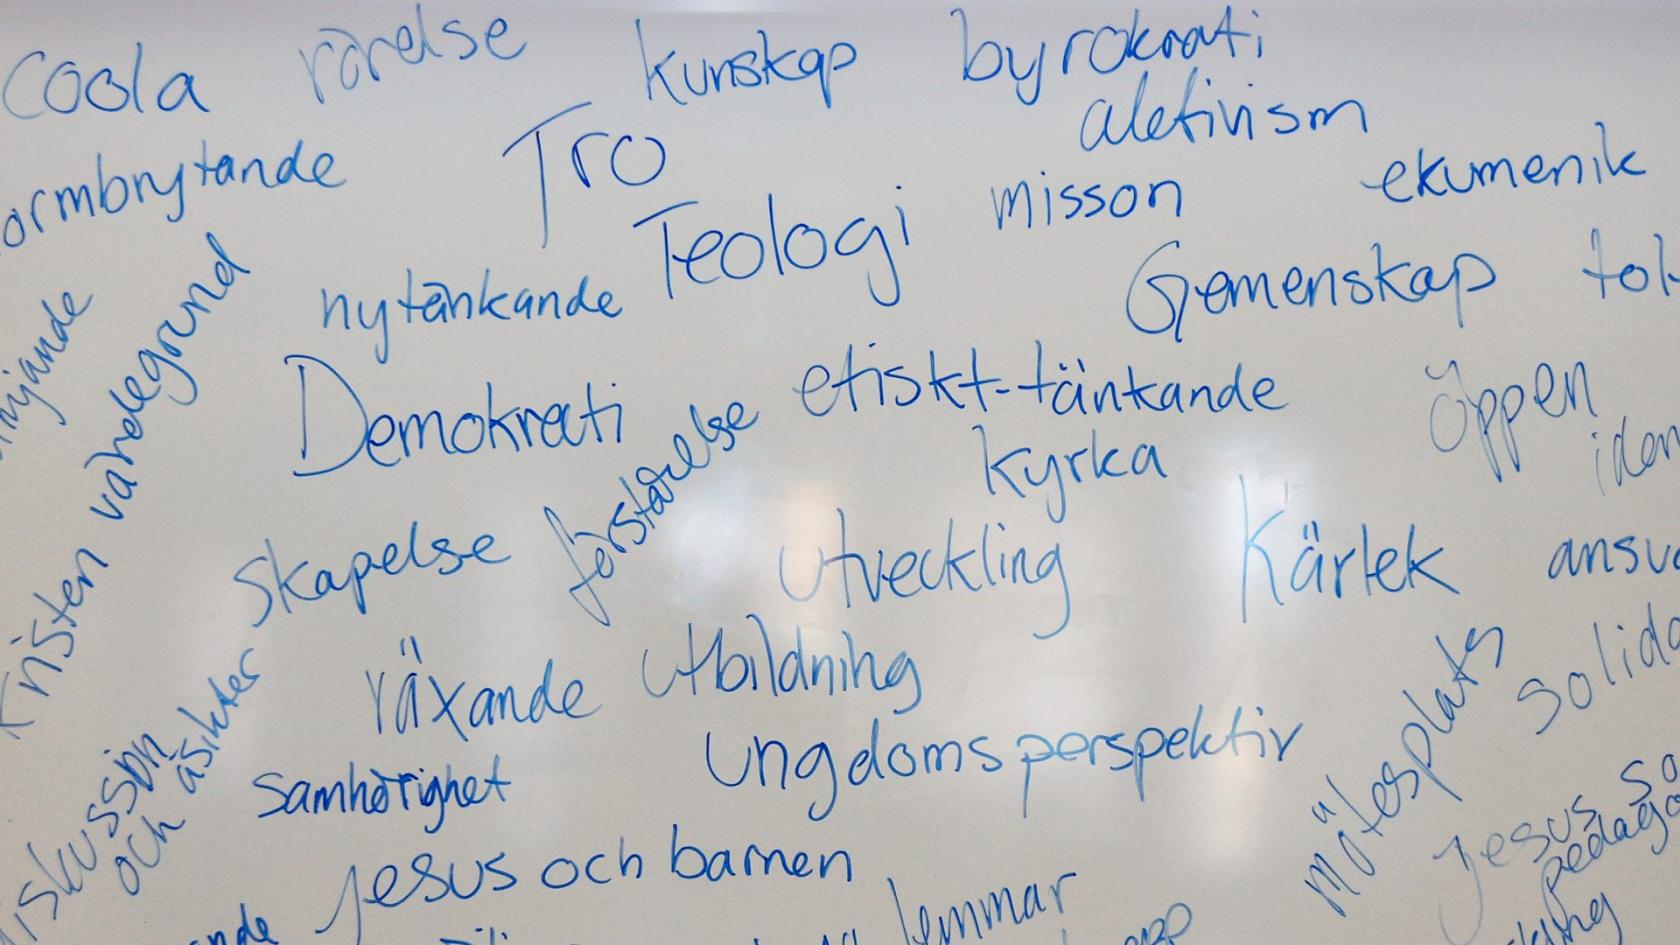 Coola
rörelse
kunskap
byrokrati
aktivism
ormbrytande
Tro
misson
ekumenik
Teologi
nytänkande
Gemenskap
tol
Kristen värdegrund
Demokrati
etiskt-tänkande
öppen
förståelse
kyrka
iden
Skapelse
utveckling
Kärlek
ansva
växande
utbildning
solida
iskussion
och åsikter
samhörighet
ungdomsperspektiv
mötesplats
Jesus och barnen
Jesus so
pedago
lemmar
ande